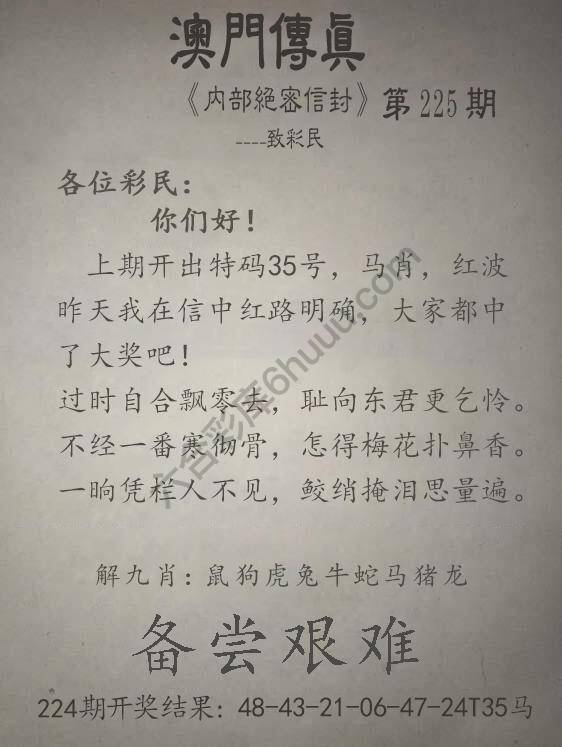 澳門傳眞
《内部絕密信封》第225期
----致彩民
各位彩民：
你们好！
上期开出特码35号，马肖，红波
昨天我在信中红路明确，大家都中
了大奖吧！
过时自合飘零去，耻向东君更乞怜。
不经一番寒彻骨，怎得梅花扑鼻香。
一晌凭栏人不见，鲛绡掩泪思量遍。
六合彩库6huuu.com
解九肖：鼠狗虎兔牛蛇马猪龙
备尝艰难
224期开奖结果：48-43-21-06-47-24T35马